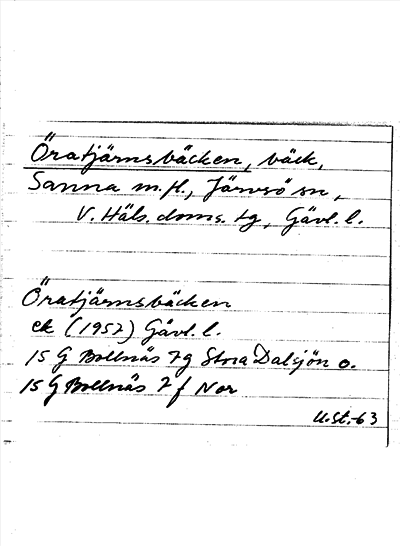 Öratjärnsbäcken, bäck,
Sanna m.fl., Järvsö sn,
V. Häls. doms. tg, Gävl. l.
Öratjärnsbäcken
ek (1957) Gävl. l.
15 G Bollnäs 7g Stora Dalsjön o.
15 G Bollnäs 7f Nor
U.St.-63